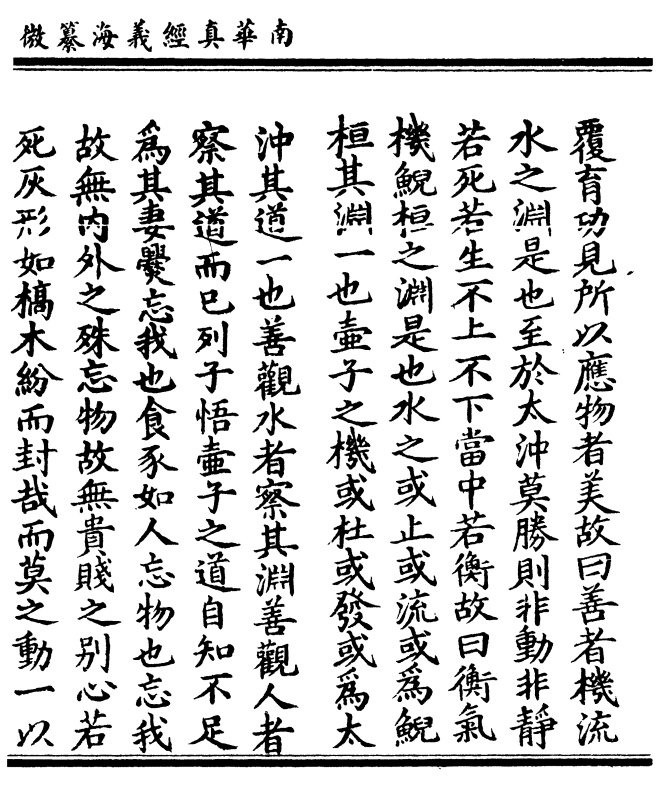 南華真經義海纂微
覆育功見所以應物者美故曰善者機流
水之淵是也至於太沖莫勝則非動非靜
若死若生不上不下當中若衡故曰衡氣
機鯢桓之淵是也水之或止或流或為鯢
桓其淵一也壷子之機或杜或發或為太
沖其道一也善觀水者察其淵善觀人者
察其道而已列子悟壷子之道自知不足
為其妻爨忘我也食豕如人忘物也忘我
故無内外之殊忘物故無貴賤之别心若
死灰形如槁木紛而封哉而莫之動一以